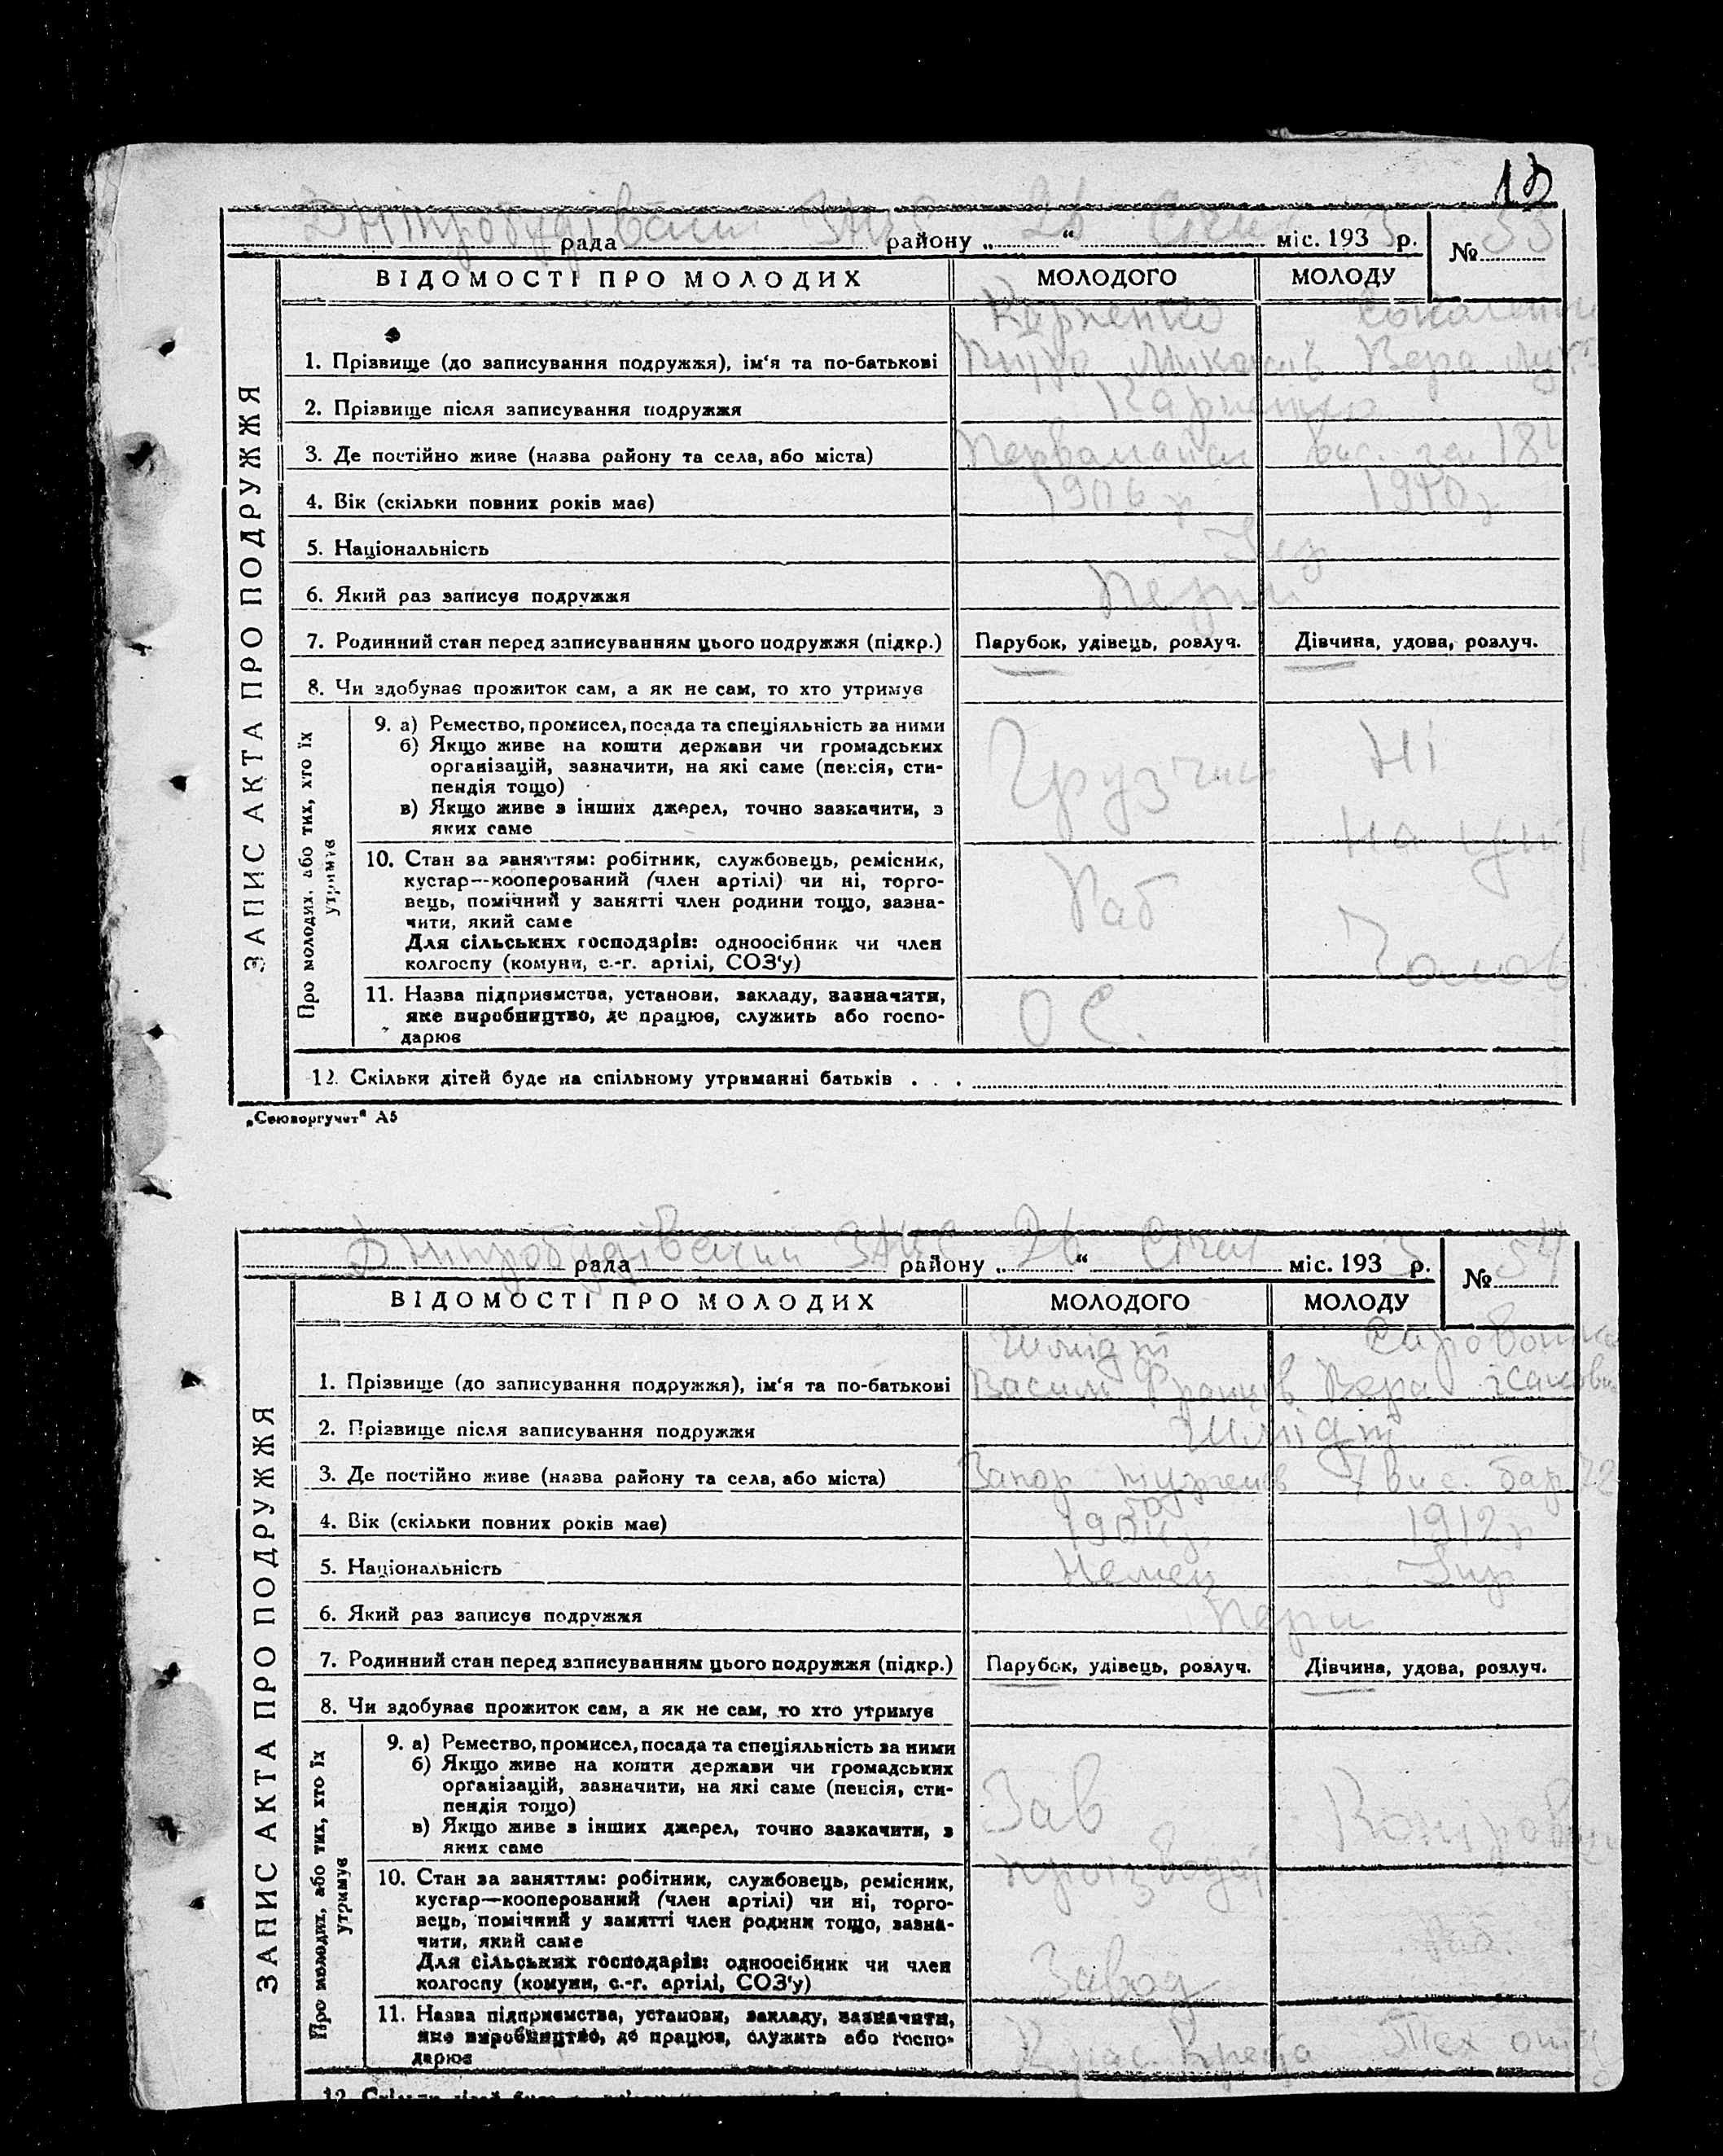 13
Дніпробудівський ЗАГС 26 Січня 3 53
рада району „ “ міс. 193 р. №
ВІДОМОСТІ ПРО МОЛОДИХ МОЛОДОГО МОЛОДУ
ЗАПИС АКТА ПРО ПОДРУЖЖЯ
Карпенко
1. Прізвище (до записування подружжя), ім‘я та по-батькові Микол Вера
2. Прізвище після записування подружжя Карпенко
3. Де постійно живе (назва району та села, або міста) вис.
4. Вік (скільки повних років має) 1906 р 1910 р
5. Національність Укр
6. Який раз записує подружжя Перш
7. Родинний стан перед записуванням цього подружжя (підкр.) Парубок, удівець, розлуч. Дівчина, удова, розлуч.
8. Чи здобуває прожиток сам, а як не сам, то хто утримує
Про молодих, або тих, хто їх утримує
9. а) Ремество, промисел, посада та спеціяльність за ними
б) Якщо живе на кошти держави чи громадських
організацій, зазначити, на які саме (пенсія, сти-
пендія тощо)
в) Якщо живе з інших джерел, точно зазначити, з
яких саме
Грузчик Ні
на
10. Стан за заняттям: робітник, службовець, ремісник,
кустар—кооперований (член артілі) чи ні, торго-
вець, помічний у занятті член родини тощо, зазна-
чити, який саме
Для сільських господарів: одноосібник чи член
колгоспу (комуни, с.-г. артілі, СОЗ‘у)
Раб Чолов.
11. Назва підприємства, установи, закладу, зазначити,
яке виробництво, де працює, служить або госпо-
дарює
О С.
12. Скільки дітей буде на спільному утриманні батьків . . .
„Союзоргучет“ А5
Дніпробудівський ЗАГС 26 Січня 3 54
рада району „ “ міс. 193 р. №
ВІДОМОСТІ ПРО МОЛОДИХ МОЛОДОГО МОЛОДУ
ЗАПИС АКТА ПРО ПОДРУЖЖЯ
Шмідт
1. Прізвище (до записування подружжя), ім‘я та по-батькові Василь Францов Вера
2. Прізвище після записування подружжя Шмідт
3. Де постійно живе (назва району та села, або міста) Запор вис. бар. 22
4. Вік (скільки повних років має) 1912 р
5. Національність Немец Укр
6. Який раз записує подружжя Перш
7. Родинний стан перед записуванням цього подружжя (підкр.) Парубок, удівець, розлуч. Дівчина, удова, розлуч.
8. Чи здобуває прожиток сам, а як не сам, то хто утримує
Про молодих, або тих, хто їх утримує
9. а) Ремество, промисел, посада та спеціяльність за ними
б) Якщо живе на кошти держави чи громадських
організацій, зазначити, на які саме (пенсія, сти-
пендія тощо)
в) Якщо живе з інших джерел, точно зазначити, з
яких саме
Зав
10. Стан за заняттям: робітник, службовець, ремісник,
кустар—кооперований (член артілі) чи ні, торго-
вець, помічний у занятті член родини тощо, зазна-
чити, який саме
Для сільських господарів: одноосібник чи член
колгоспу (комуни, с.-г. артілі, СОЗ‘у)
Раб.
Завод
11. Назва підприємства, установи, закладу, зазначити,
яке виробництво, де працює, служить або госпо-
дарює
Тех